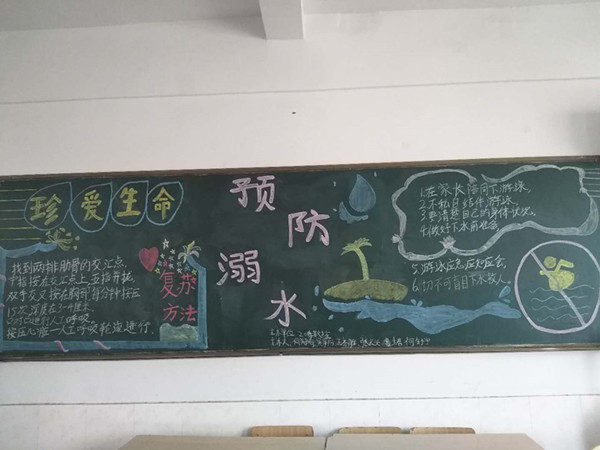 珍爱生命
找到两排肋骨的交汇点,
中指按在交汇点上,五指并拢,
双手交叉按在胸前,每分钟按压
15次,深度在
对口进行人工呼吸
按压心脏一人工呼吸轮流进行.
复苏
方法
预
防
溺
水
1.在家长陪同下游泳.
2.不私自结伴游泳.
3.要清楚自己的身体状况.
4.做好下水前准备.
5.游泳应急应知应会.
6.切不可盲目下水救人.